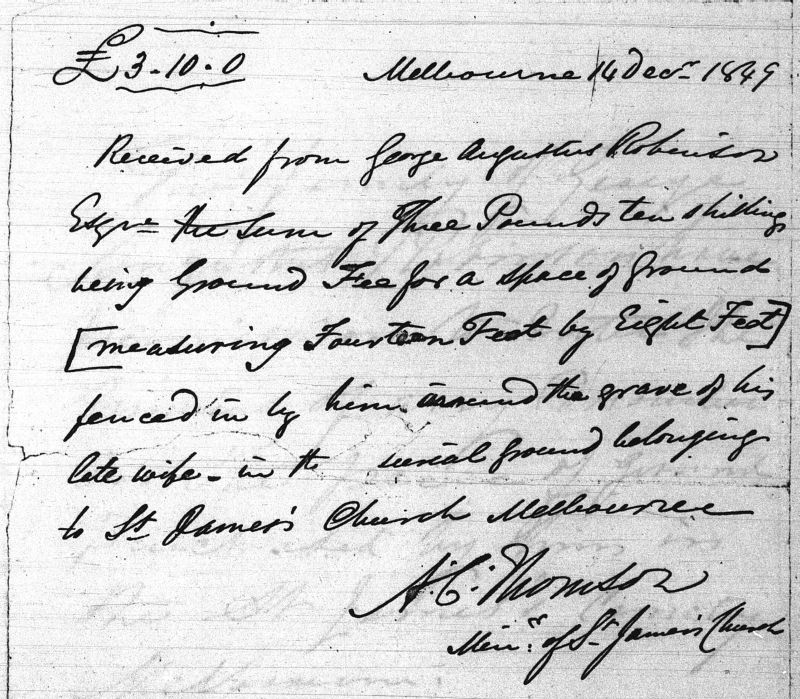 £3-10-0 Melbourne 14 Decr 1849
Received from George Augustus Robinson
Esqre the sum of Three Pounds ten shillings
being Ground Fee for a space of ground
[measuring Fourteen Feet by Eight Feet]
fenced in by him around the grave of his
late wife - in the burial ground belonging
to St James's Church Melbourne
A. C. Thomson
Minr of St James's Church